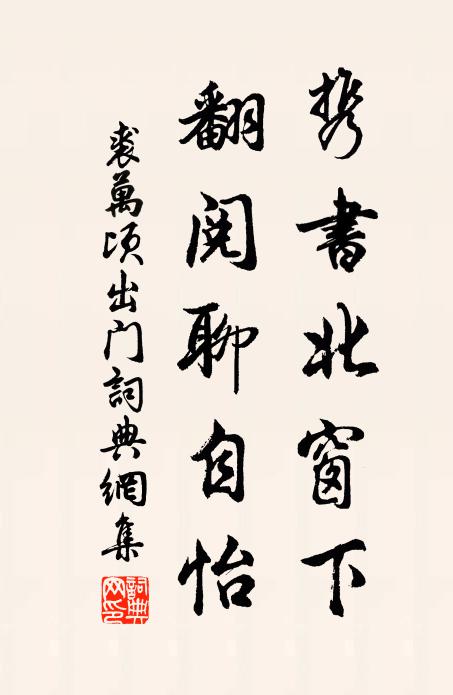 携書北窗下
翻閱聊自怡
裘萬頃出门詞典網集
詞典網印